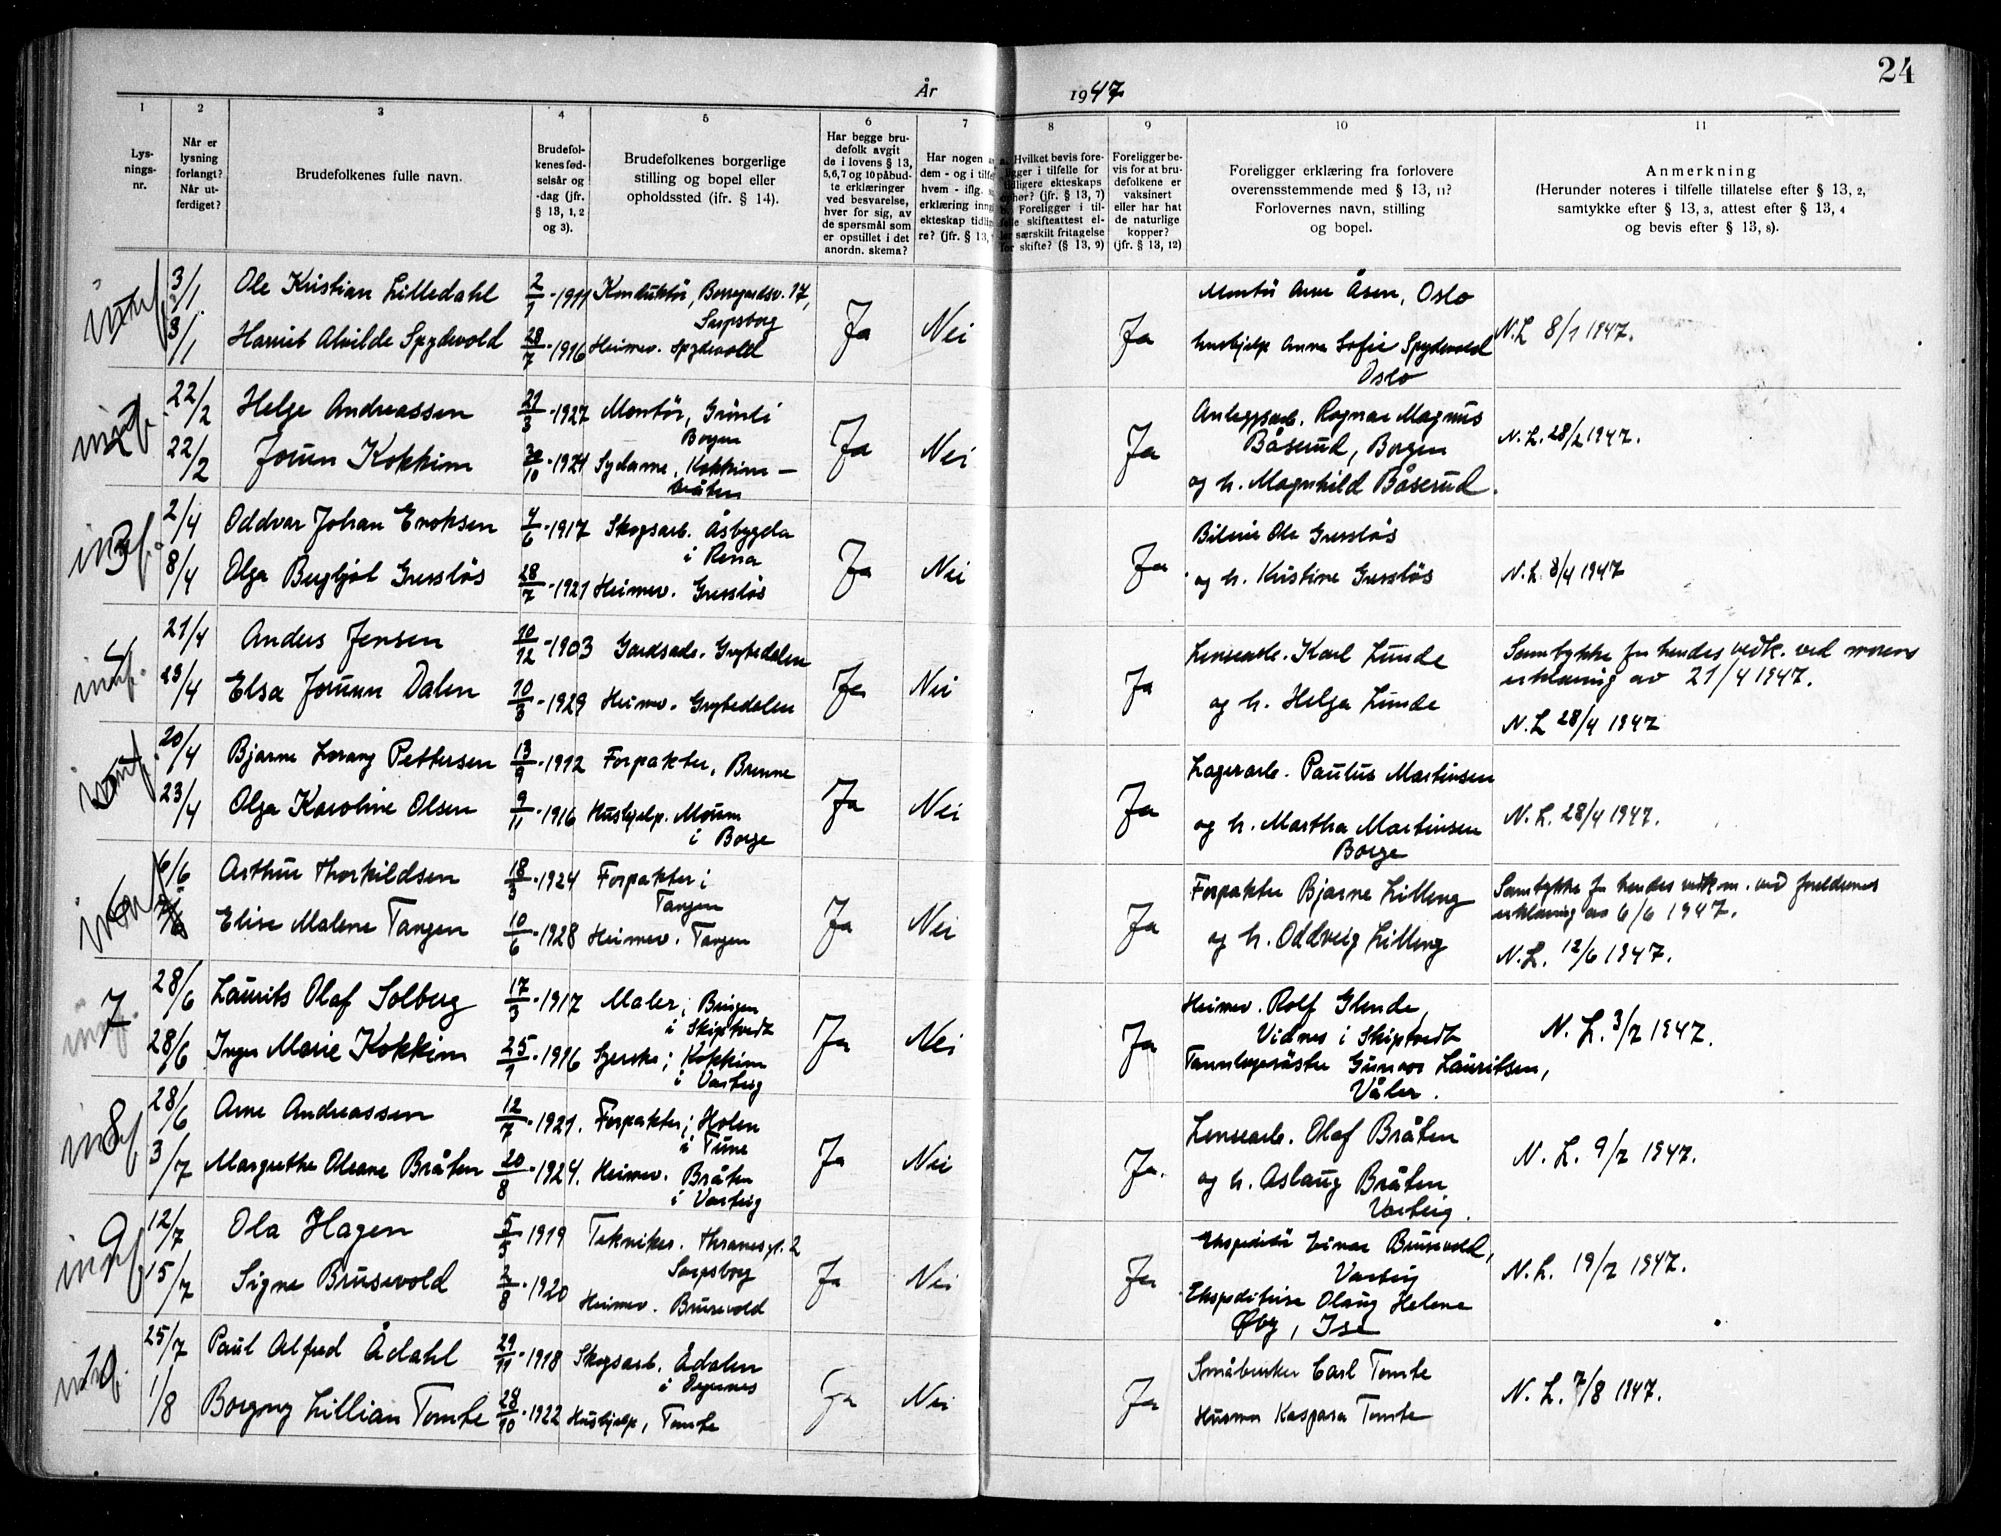 24
År 1947
1 2 3 4 5 6 7 8 9 10 11
Lys-
nings-
nr.
Når er
lysning
forlangt?
Når ut-
ferdiget?
Brudefolkenes fulle navn.
Brudefol-
kenes fød-
selsår og
-dag (jfr.
§ 13, 1, 2
og 3).
Brudefolkenes borgerlige
stilling og bopel eller
opholdssted (ifr. § 14).
Har begge bru-
defolk avgit
de i lovens § 13,
5, 6, 7 og 10 påbud-
te erklæringer
ved besvarelse,
hver for sig, av
de spørsmål som
er opstillet i det
anordn. skema?
Har nogen a
dem - og i tilfe
hvem - iflg. 
erklæring inng
ekteskap tidli
re? (jfr. § 13,
Hvilket bevis fore-
ligger i tilfelle for
tidligere ekteskaps
ophør? (jfr. § 13, 7)
Foreligger i til-
felle skifteattest el-
ler særskilt fritagelse
for skifte? (§ 13, 9)
Foreligger be-
vis for at bru-
defolkene er
vaksinert
eller har hat
de naturlige
kopper?
(jfr. § 13, 12)
Foreligger erklæring fra forlovere
overensstemmende med § 13, 11?
Forlovernes navn, stilling
og bopel.
Anmerkning
(Herunder noteres i tilfelle tillatelse efter § 13, 2,
samtykke efter § 13, 3, attest efter § 13, 4
og bevis efter § 13, 8).
3/1 Ole Kristian Lilledahl 2/1-1911 Konduktør, Borregardsv. 17, Montør Arne Åsen, Oslo
Sarpsborg
3/1 Harriet Alvilde Spydevold 28/7-1916 Heimev. Spydevold Ja Nei Ja Anna Sofie Spydevold N.L 8/1 1947.
Oslo
22/2 Helge Andreassen 21/3-1927 Montør, Grinli Anleggsarb. Ragnar Magnus
Borgen Ja Nei Ja Båserud, Borgen N.L. 28/2 1947.
22/2 Jorun Kokkim 30/10-1921 Sydame, Kokkim-
bråten og h. Magnhild Båserud.
3 2/4 Oddvar Johan Enoksen 4/6-1917 Skogsarb. Åsbygda Ole Gressløs
i Rena Ja Nei Ja
8/4 Olga Bergljot Gressløs 28/7-1921 Heimev. Gressløs og h. Kristine Gressløs N.L. 8/4 1947
4 21/4 Anders Jensen 10/12-1903 Grytedalen Lensearb. Karl Lunde Samtykke for hendes vedk. ved morens
23/4 Elsa Jorunn Dalen 10/3-1929 Heimev. Grytedalen Ja Nei Ja og h. Helga Lunde erklæring av 21/4 1947.
N.L 28/4 1947
5 20/4 Bjarne Lorang Pettersen 13/9-1912 Forpakter, Brenne Lagerarb. Paulus Martinsen
23/4 Olga Karoline Olsen 9/11-1916 Hushjelp. Moum Ja Nei Ja og h. Martha Martinsen N.L. 28/4 1947.
i Borge Borge
6 6/6 Arthur Thorkildsen 18/3-1924 Forpakter i Forpakter Bjarne Lilleng Samtykke for hendes vedkom. ved foreldrenes
Tangen erklæring av 6/6 1947.
Elise Malene Tangen 10/6-1928 Heimev. Tangen Ja Nei Ja og h. Oddveig Lilleng N.L. 12/6 1947.
7 28/6 Laurits Olaf Solberg 17/3-1917 Maler; Heimev. Rolf Glende,
i Skiptvedt Ja Nei Ja Vidnes i Skiptvedt N. L. 3/7 1947.
28/6 Inger Marie Kokkim 25/1-1916 Syerske; Kokkim Gunvor Lauritsen,
i Varteig Våler.
8 28/6 Arne Andreassen 12/7-1921. Forpakter; Holen Lensearb. Olaf Bråten
i Tune Ja Nei Ja. N. L. 9/7 1947.
3/7 Margrethe Oleane Bråten 20/8-1924. Heimev. Bråten og h. Aslaug Bråten
i Varteig Varteig.
9 12/7 Ola Hagen 5/5-1919 Tekniker. Thranesgt. 2 Ekspeditør Einar Brusevold,
Sarpsborg Ja Nei Ja Varteig N.L. 19/7 1947.
15/7 Signe Brusevold 2/8-1920 Heimev. Brusevold Ekspeditrise Olaug Helene
Øby, Ise
10 25/7 Paul Alfred Ådahl 29/11-1918 Skogsarb. Ådalen Småbruker Carl Tomte
i Degernes Ja Nei Ja N. L. 7/8 1947.
1/8 Borgny Lillian Tomte 28/10-1922 Hushjelp, Tomte Husmor Kaspara Tomte